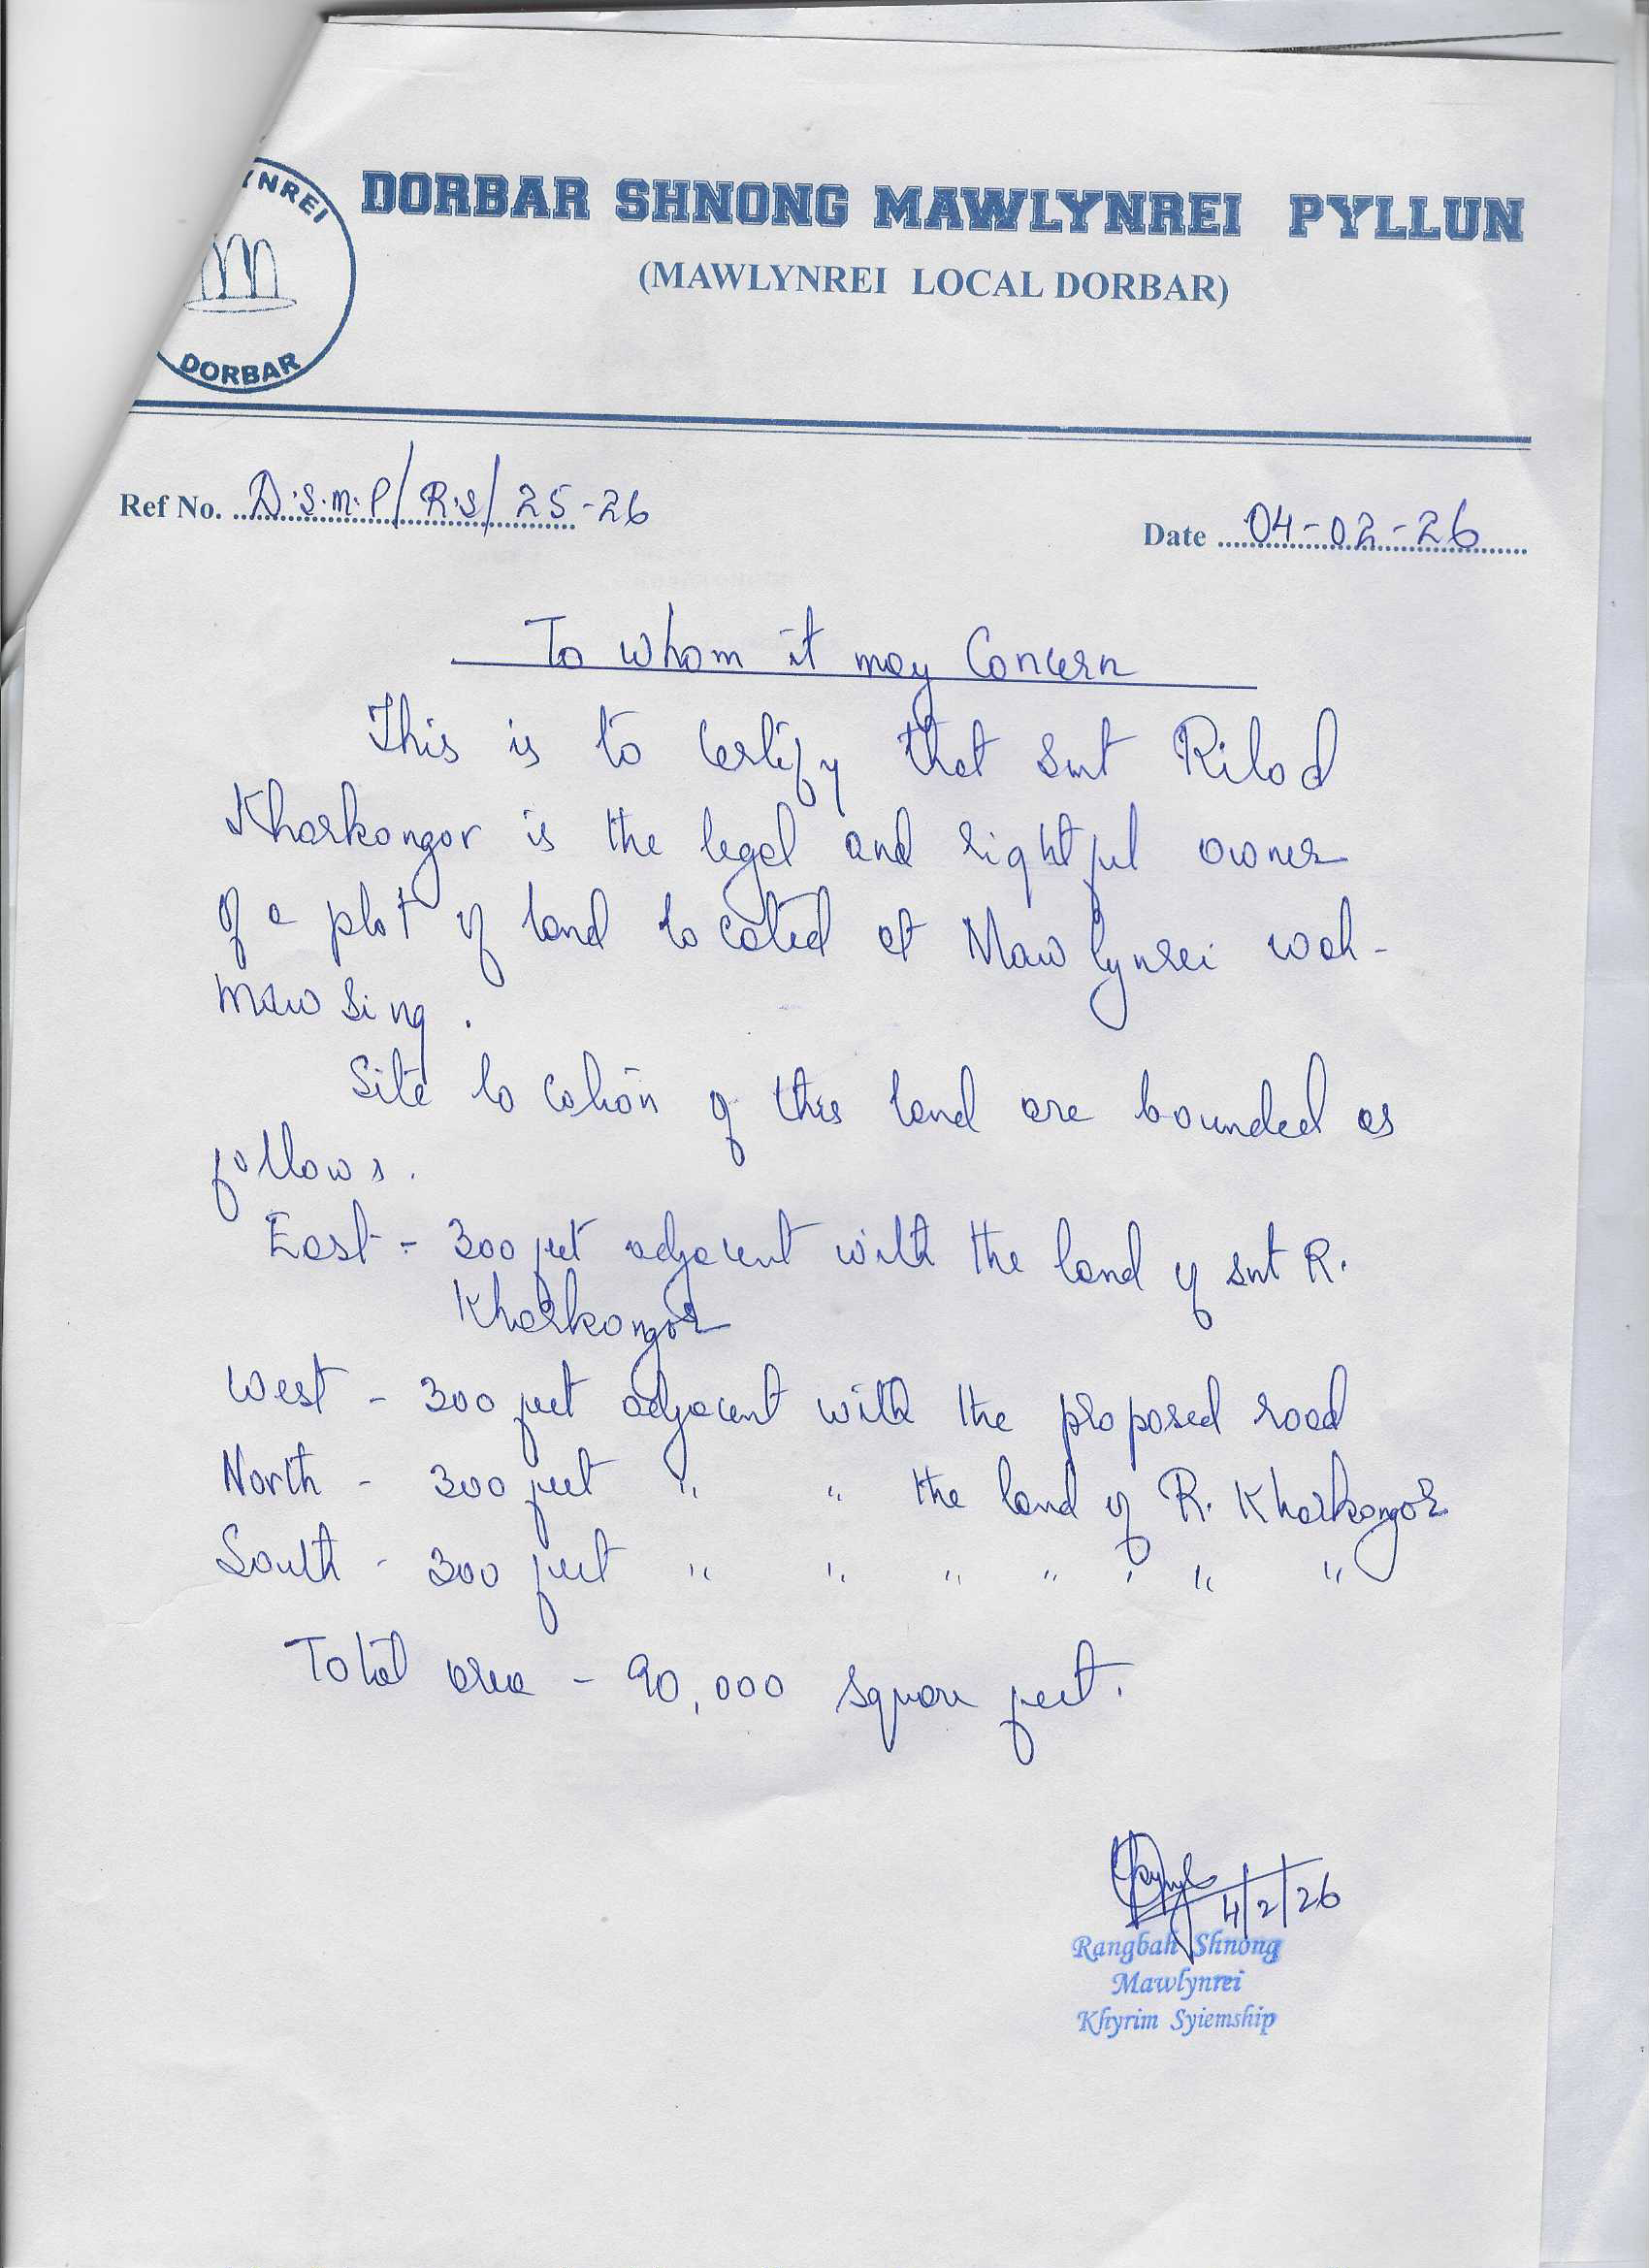 YNREI
DORBAR
DORBAR SHNONG MAWLYNREI PYLLUN
(MAWLYNREI LOCAL DORBAR)
Ref No. D.S.M.P/R.S/25-26
Date 04-02-26
To whom it may Concern
This is to Certify that Smt Rilod
Kharkongor is the legal and rightful owner
of a plot of land located at Mawlynrei wah-
mawsing.
Site location of this land are bounded as
follows.
East - 300 feet adjacent with the land of smt R.
Kharkongor
West - 300 feet adjacent with the proposed road
North - 300 feet " " the land of R. Kharkongor
South - 300 feet " " " " " " "
Total area - 90,000 square feet.
4/2/26
Rangbah Shnong
Mawlynrei
Khyrim Syiemship